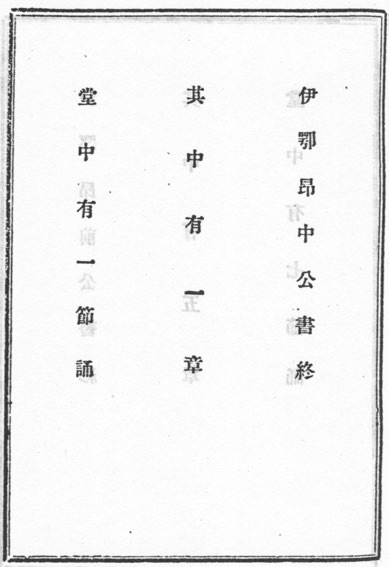 伊鄂昂中公書終
其中有一章
堂中有一節誦